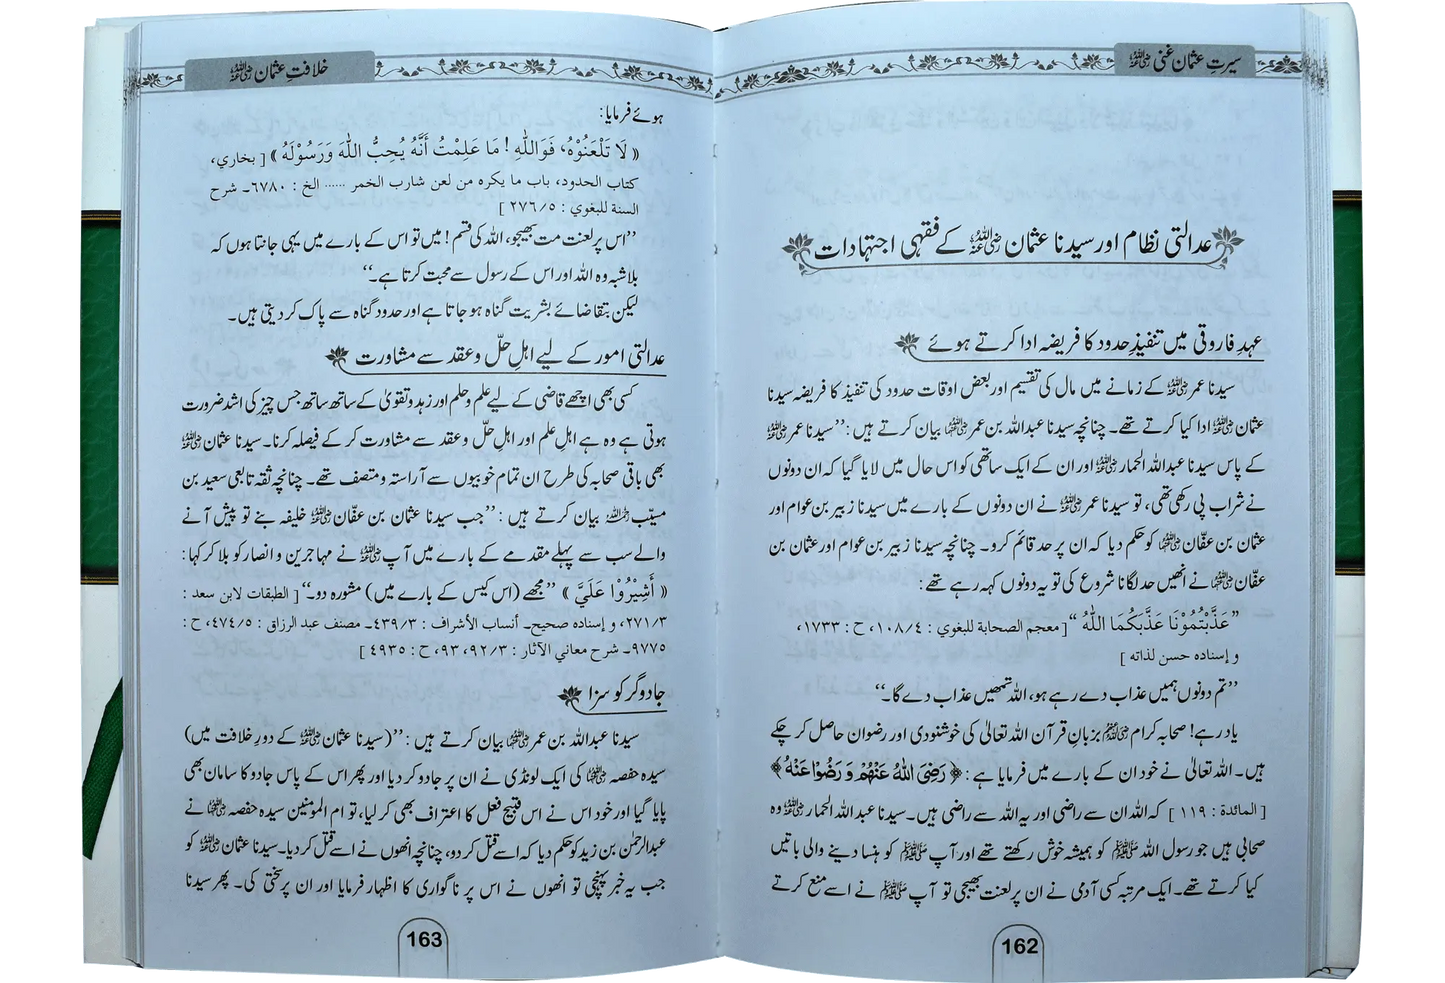 سیرتِ عثمان غنی رضی اللہ عنہ
عدالتی نظام اور سیدنا عثمان رضی اللہ عنہ کے فقہی اجتہادات
عہدِ فاروقی میں تنفیذِ حدود کا فریضہ ادا کرتے ہوئے
سیدنا عمر رضی اللہ عنہ کے زمانے میں مال کی تقسیم اور بعض اوقات حدود کی تنفیذ کا فریضہ سیدنا
عثمان رضی اللہ عنہ ادا کیا کرتے تھے۔ چنانچہ سیدنا عبداللہ بن عمر رضی اللہ عنہما بیان کرتے ہیں: ’’سیدنا عمر رضی اللہ عنہ
کے پاس سیدنا عبداللہ الحمار رضی اللہ عنہ اور ان کے ایک ساتھی کو اس حال میں لایا گیا کہ ان دونوں
نے شراب پی رکھی تھی، تو سیدنا عمر رضی اللہ عنہ نے ان دونوں کے بارے میں سیدنا زبیر بن عوام اور
عثمان بن عفّان رضی اللہ عنہما کو حکم دیا کہ ان پر حد قائم کرو۔ چنانچہ سیدنا زبیر بن عوام اور عثمان بن
عفّان رضی اللہ عنہما نے انھیں حد لگانا شروع کی تو یہ دونوں کہہ رہے تھے:
”عَذَّبْتُمُوْنَا عَذَّبَكُمَا اللّٰهُ“ [معجم الصحابة للبغوي : ١٠٨/٤، ح : ١٧٣٣،
و إسناده حسن لذاته ]
’’تم دونوں ہمیں عذاب دے رہے ہو، اللہ تمھیں عذاب دے گا۔‘‘
یاد رہے! صحابہ کرام رضی اللہ عنہم بزبانِ قرآن اللہ تعالیٰ کی خوشنودی اور رضوان حاصل کر چکے
ہیں۔ اللہ تعالیٰ نے خود ان کے بارے میں فرمایا ہے: ﴿ رَضِيَ اللّٰهُ عَنْهُمْ وَ رَضُوْا عَنْهُ ﴾
[ المائدة : ١١٩ ] کہ اللہ ان سے راضی اور یہ اللہ سے راضی ہیں۔ سیدنا عبداللہ الحمار رضی اللہ عنہ وہ
صحابی ہیں جو رسول اللہ ﷺ کو ہمیشہ خوش رکھتے تھے اور آپ ﷺ کو ہنسا دینے والی باتیں
کیا کرتے تھے۔ ایک مرتبہ کسی آدمی نے ان پر لعنت بھیجی تو آپ ﷺ نے اسے منع کرتے
162
خلافتِ عثمان رضی اللہ عنہ
ہوئے فرمایا:
« لَا تَلْعَنُوْهُ، فَوَاللّٰهِ! مَا عَلِمْتُ أَنَّهُ يُحِبُّ اللّٰهَ وَرَسُوْلَهُ » [ بخاري،
كتاب الحدود، باب ما يكره من لعن شارب الخمر ...... الخ : ٦٧٨٠۔ شرح
السنة للبغوي : ٢٧٦/٥ ]
’’اس پر لعنت مت بھیجو، اللہ کی قسم! میں تو اس کے بارے میں یہی جانتا ہوں کہ
بلاشبہ وہ اللہ اور اس کے رسول سے محبت کرتا ہے۔‘‘
لیکن بتقاضائے بشریت گناہ ہو جاتا ہے اور حدود گناہ سے پاک کر دیتی ہیں۔
عدالتی امور کے لیے اہلِ حلّ و عقد سے مشاورت
کسی بھی اچھے قاضی کے لیے علم و حلم اور زہد و تقویٰ کے ساتھ ساتھ جس چیز کی اشد ضرورت
ہوتی ہے وہ ہے اہلِ علم اور اہلِ حلّ و عقد سے مشاورت کر کے فیصلہ کرنا۔ سیدنا عثمان رضی اللہ عنہ
بھی باقی صحابہ کی طرح ان تمام خوبیوں سے آراستہ و متصف تھے۔ چنانچہ ثقہ تابعی سعید بن
مسیّب رحمہ اللہ بیان کرتے ہیں: ’’جب سیدنا عثمان بن عفّان رضی اللہ عنہ خلیفہ بنے تو پیش آنے
والے سب سے پہلے مقدمے کے بارے میں آپ رضی اللہ عنہ نے مہاجرین و انصار کو بلا کر کہا:
« أَشِيْرُوْا عَلَيَّ » ’’مجھے (اس کیس کے بارے میں) مشورہ دو۔‘‘ [ الطبقات لابن سعد :
٢٧١/٣، و إسناده صحيح۔ أنساب الأشراف : ٤٣٩/٣۔ مصنف عبد الرزاق : ٤٧٤/٥، ح :
٩٧٧٥۔ شرح معاني الآثار : ٩٢/٣، ٩٣، ح : ٤٩٣٥ ]
جادوگر کو سزا
سیدنا عبداللہ بن عمر رضی اللہ عنہما بیان کرتے ہیں: ’’(سیدنا عثمان رضی اللہ عنہ کے دورِ خلافت میں)
سیدہ حفصہ رضی اللہ عنہا کی ایک لونڈی نے ان پر جادو کر دیا اور پھر اس کے پاس جادو کا سامان بھی
پایا گیا اور خود اس نے اس قبیح فعل کا اعتراف بھی کر لیا، تو ام المومنین سیدہ حفصہ رضی اللہ عنہا نے
عبدالرحمٰن بن زید کو حکم دیا کہ اسے قتل کر دو، چنانچہ انھوں نے اسے قتل کر دیا۔ سیدنا عثمان رضی اللہ عنہ کو
جب یہ خبر پہنچی تو انھوں نے اس پر ناگواری کا اظہار فرمایا اور ان پر سختی کی۔ پھر سیدنا
163